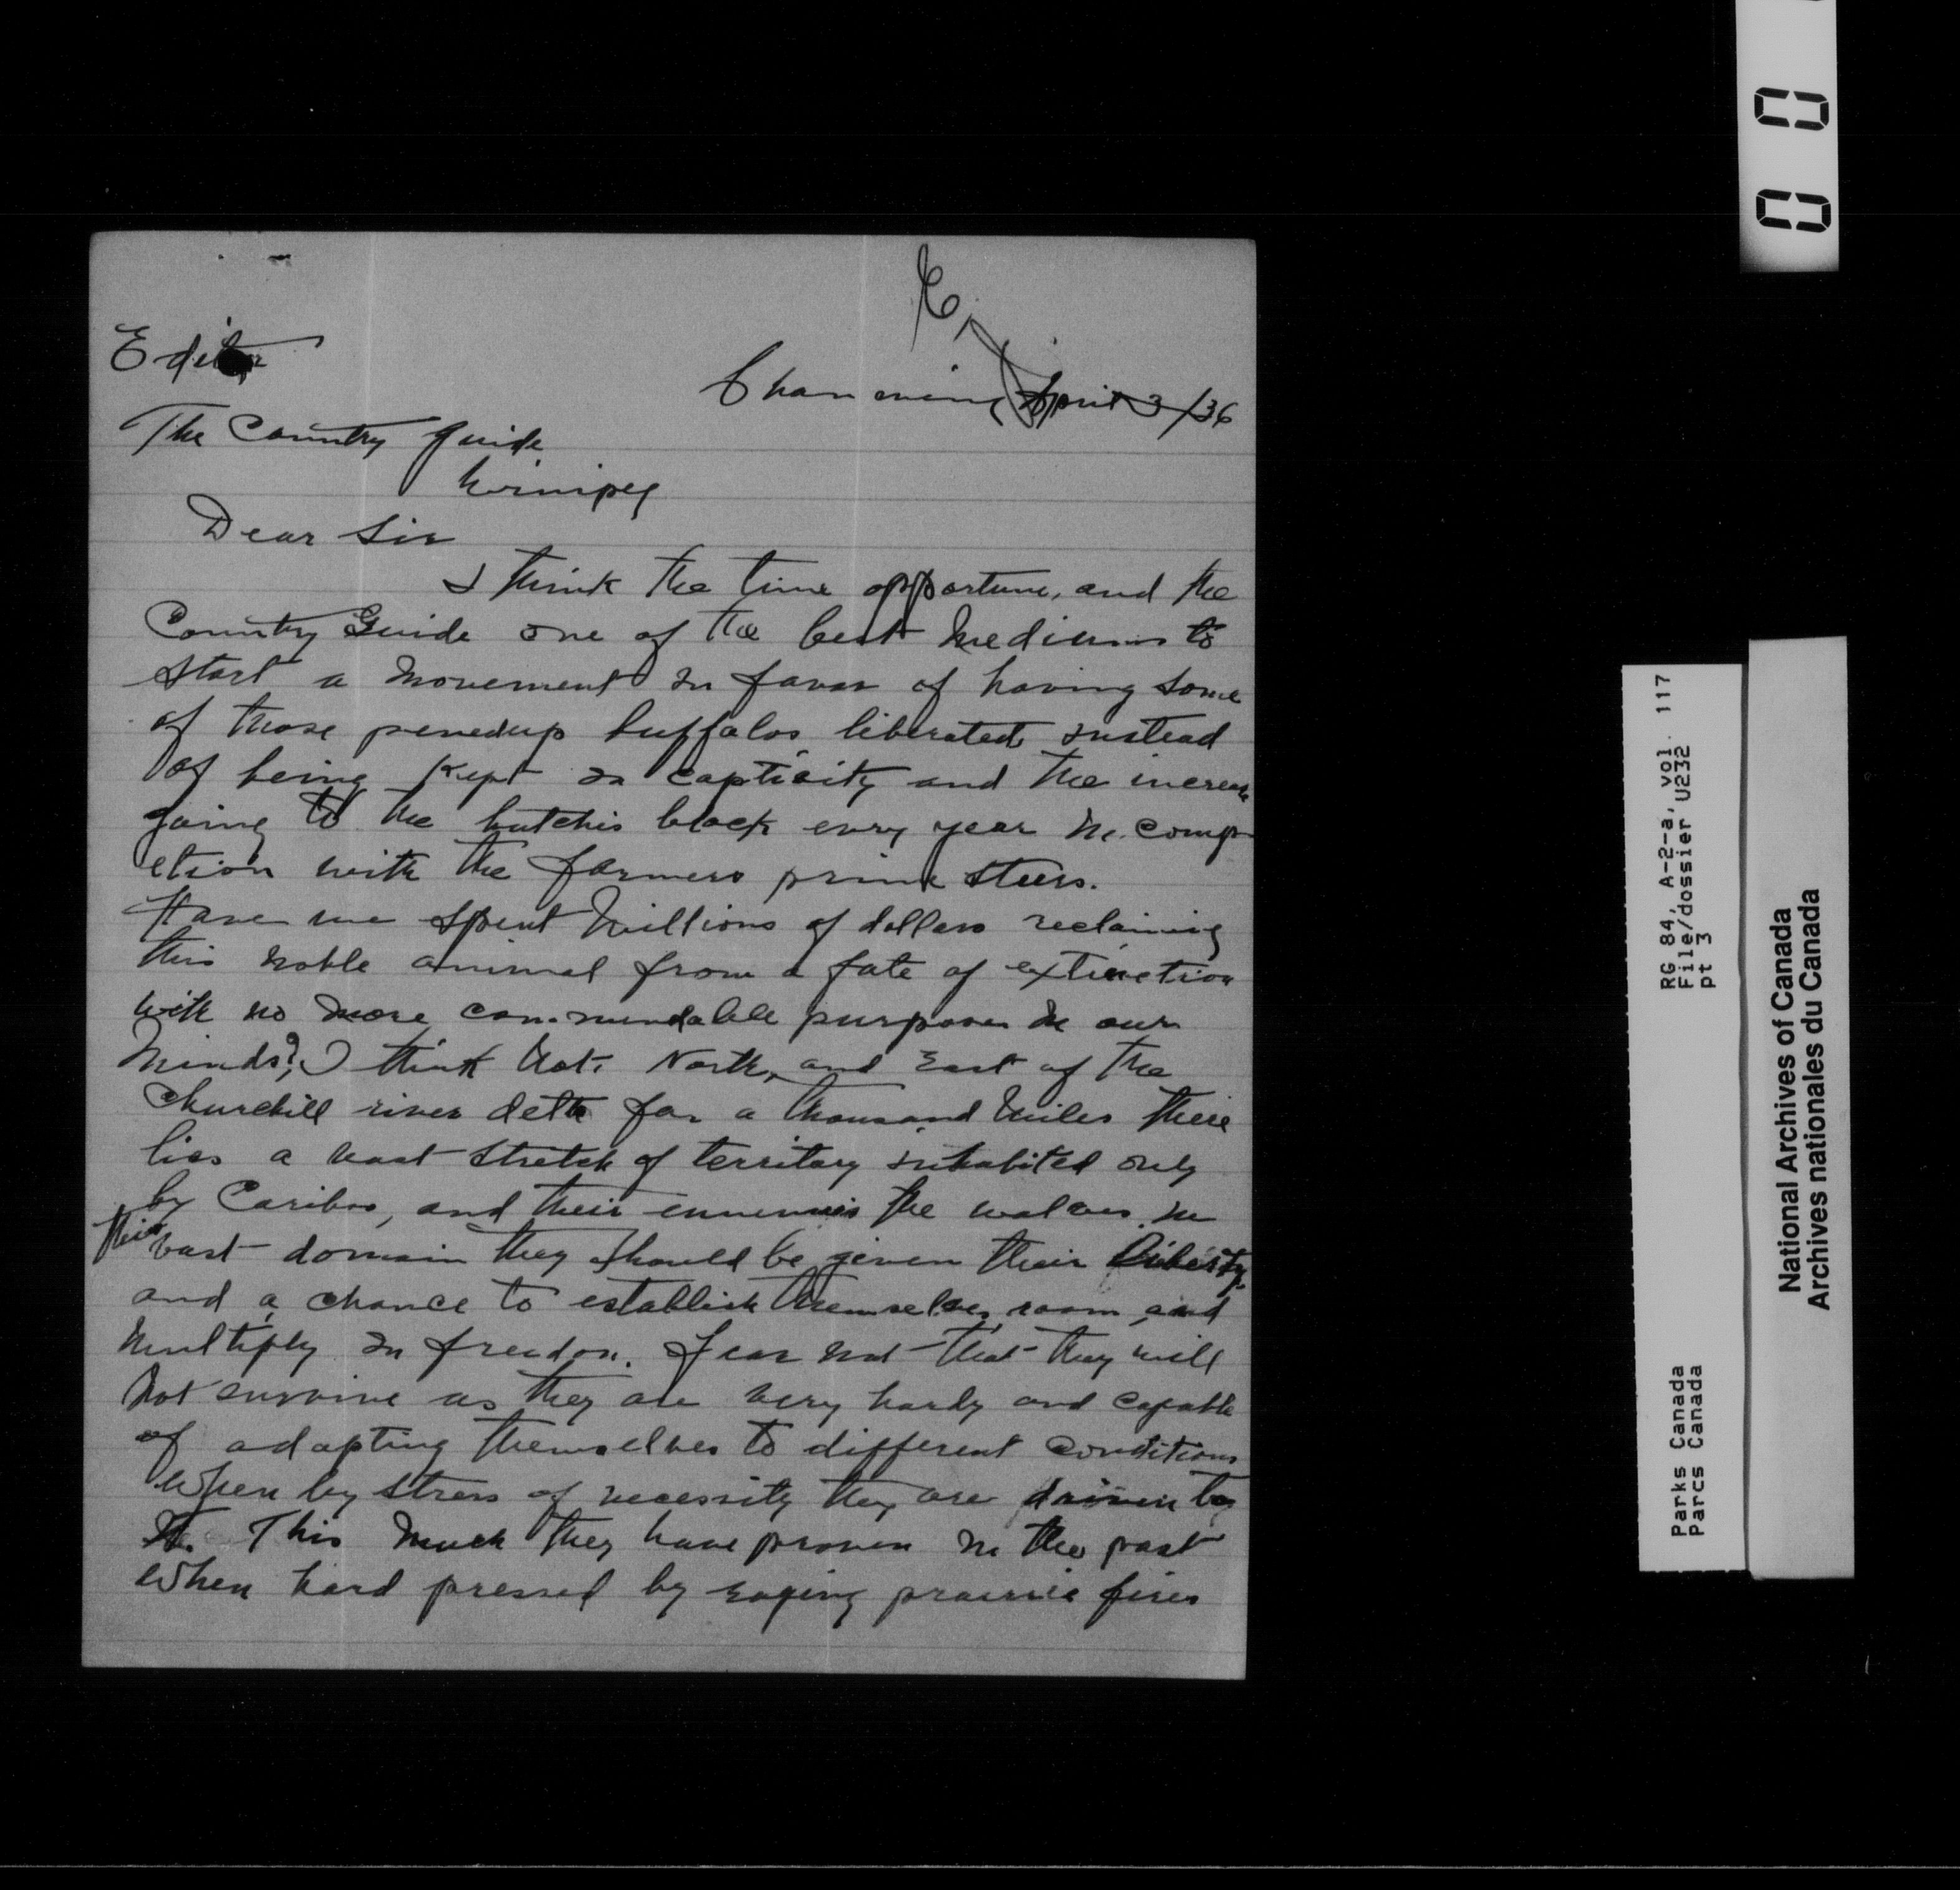 Editor
Channing April 3/36
The Country Guide
Winnipeg
Dear Sir
I think the time opportune, and the
Country Guide one of the best mediums to
start a movement in favor of having some
of those penedup buffalos liberated instead
of being kept in captivity and the increase
going to the butchis block evry year in comp-
etion with the farmers prime steers.
Have we spent millions of dollars reclaiming
this noble animal from a fate of extinction
with no more commendable purposes in our
minds? I think not. North, and East of the
Churchill river delta for a thousand miles there
lies a vast stretch of territory inhabited only
by Caribou, and their ennemies the wolves. In
this vast domain they should be given their Liberty,
and a chance to establish themselves, roam, and
multiply in freedon. Fear not that they will
not survive as they are very hardy and capable
of adapting themselves to different conditions
when by stress of necessity they are driven to
it. This much they have proven in the past
when hard pressed by raging prairie fires
0 0
RG 84, A-2-a, vol. 117
File/dossier U232
pt 3
Parks Canada
Parcs Canada
National Archives of Canada
Archives nationales du Canada